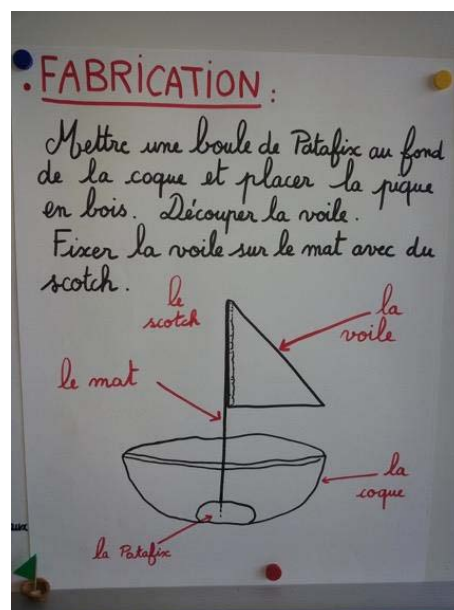 . FABRICATION :
Mettre une boule de Patafix au fond
de la coque et placer la pique
en bois. Découper la voile.
Fixer la voile sur le mat avec du
scotch.
le
scotch
la
voile
le mat
la
coque
la Patafix